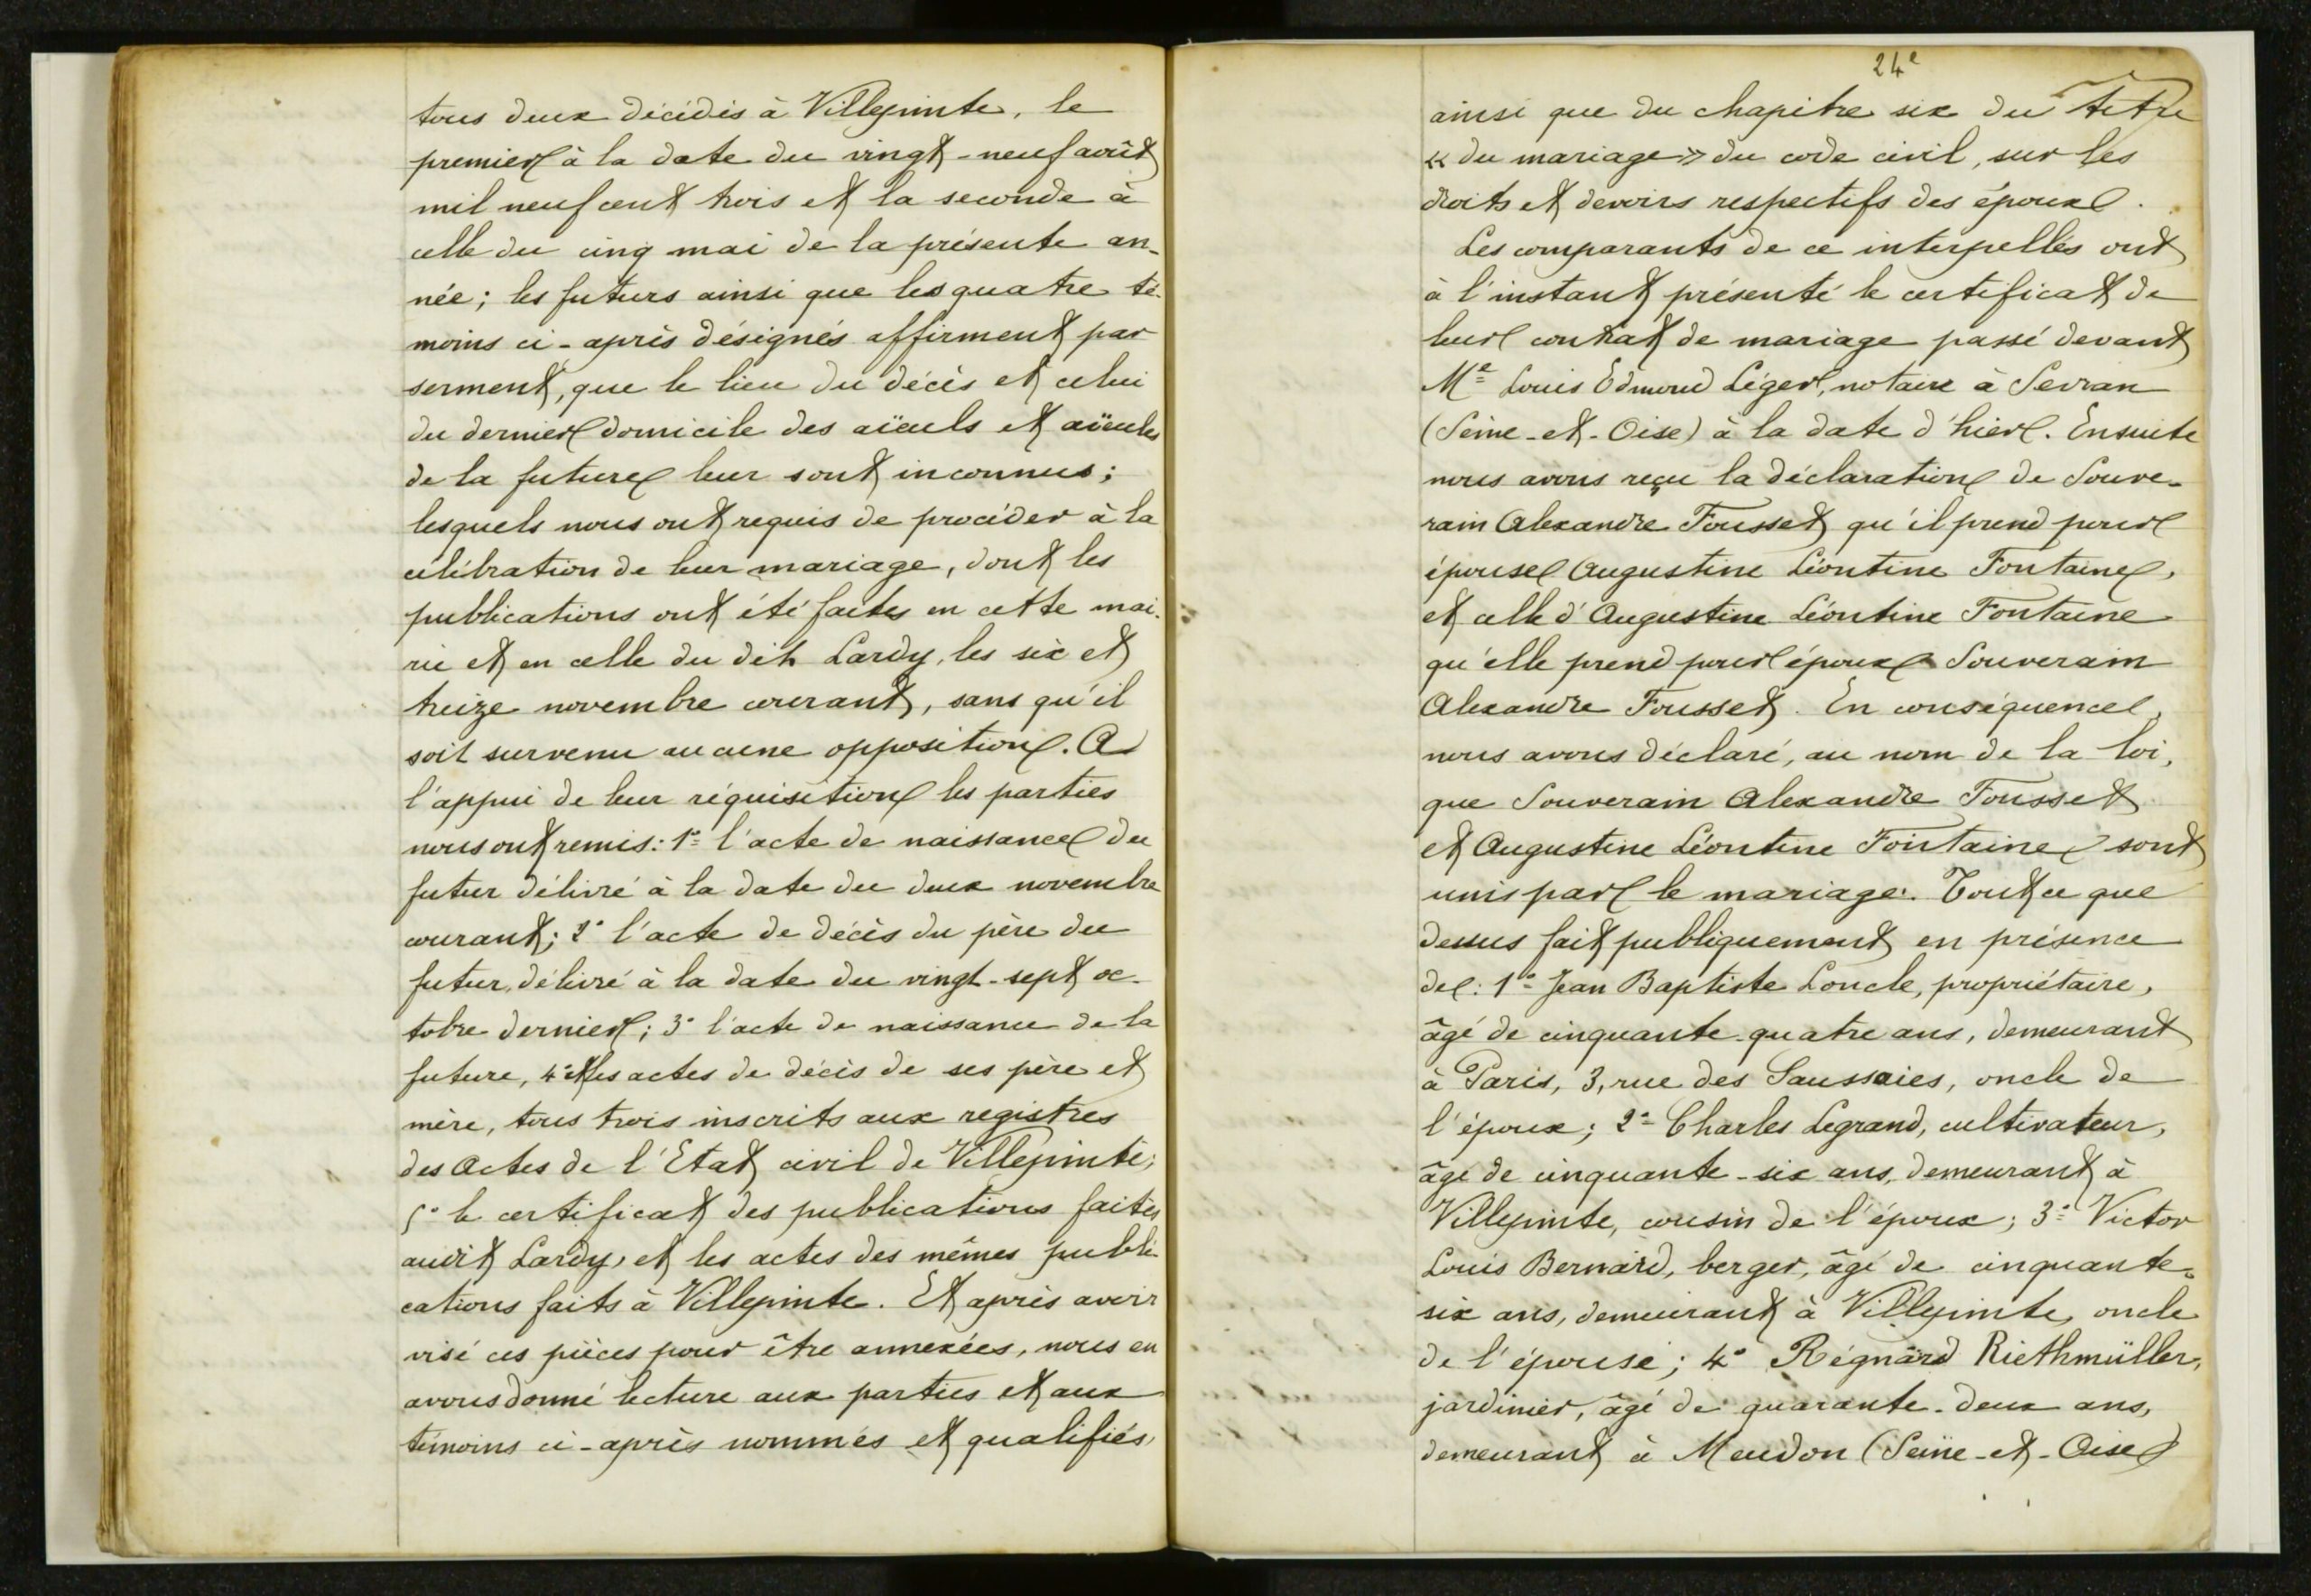 tous deux décédés à Villepinte, le
premier à la date du vingt-neuf août
mil neuf cent trois et la seconde à
celle du cinq mai de la présente an-
née; les futurs ainsi que les quatre té-
moins ci-après désignés affirment par
serment, que le lieu du décès et celui
du dernier domicile des aïeuls et aïeules
de la future leur sont inconnus;
lesquels nous ont requis de procéder à la
célébration de leur mariage, dont les
publications ont été faites en cette mai-
rie et en celle du dit Lardy, les six et
treize novembre courant, sans qu'il
soit survenu aucune opposition. A
l'appui de leur réquisition les parties
nous ont remis: 1° l'acte de naissance du
futur délivré à la date du deux novembre
courant; 2° l'acte de décès du père du
futur, délivré à la date du vingt-sept oc-
tobre dernier; 3° l'acte de naissance de la
future, 4° les actes de décès de ses père et
mère, tous trois inscrits aux registres
des Actes de l'Etat civil de Villepinte;
5° le certificat des publications faites
audit Lardy, et les actes des mêmes publi-
cations faits à Villepinte. Et après avoir
visé ces pièces pour être annexées, nous en
avons donné lecture aux parties et aux
témoins ci-après nommés et qualifiés,
24e
ainsi que du chapitre six du titre
« du mariage » du code civil, sur les
droits et devoirs respectifs des époux.
Les comparants de ce interpellés ont
à l'instant présenté le certificat de
leur contrat de mariage passé devant
Me Louis Edmond Léger, notaire à Sevran
(Seine-et-Oise) à la date d'hier. Ensuite
nous avons reçu la déclaration de Souve-
rain Alexandre Fousset qu'il prend pour
épouse Augustine Léontine Fontaine,
et celle d'Augustine Léontine Fontaine
qu'elle prend pour époux Souverain
Alexandre Fousset. En conséquence,
nous avons déclaré, au nom de la loi,
que Souverain Alexandre Fousset
et Augustine Léontine Fontaine sont
unis par le mariage. Tout ce que
dessus fait publiquement en présence
de: 1° Jean Baptiste Loncle, propriétaire,
âgé de cinquante-quatre ans, demeurant
à Paris, 3, rue des Saussaies, oncle de
l'époux; 2° Charles Legrand, cultivateur,
âgé de cinquante-six ans, demeurant à
Villepinte, cousin de l'époux; 3° Victor
Louis Bernard, berger, âgé de cinquante-
six ans, demeurant à Villepinte, oncle
de l'épouse; 4° Régnard Riethmüller,
jardinier, âgé de quarante-deux ans,
demeurant à Meudon (Seine-et-Oise)